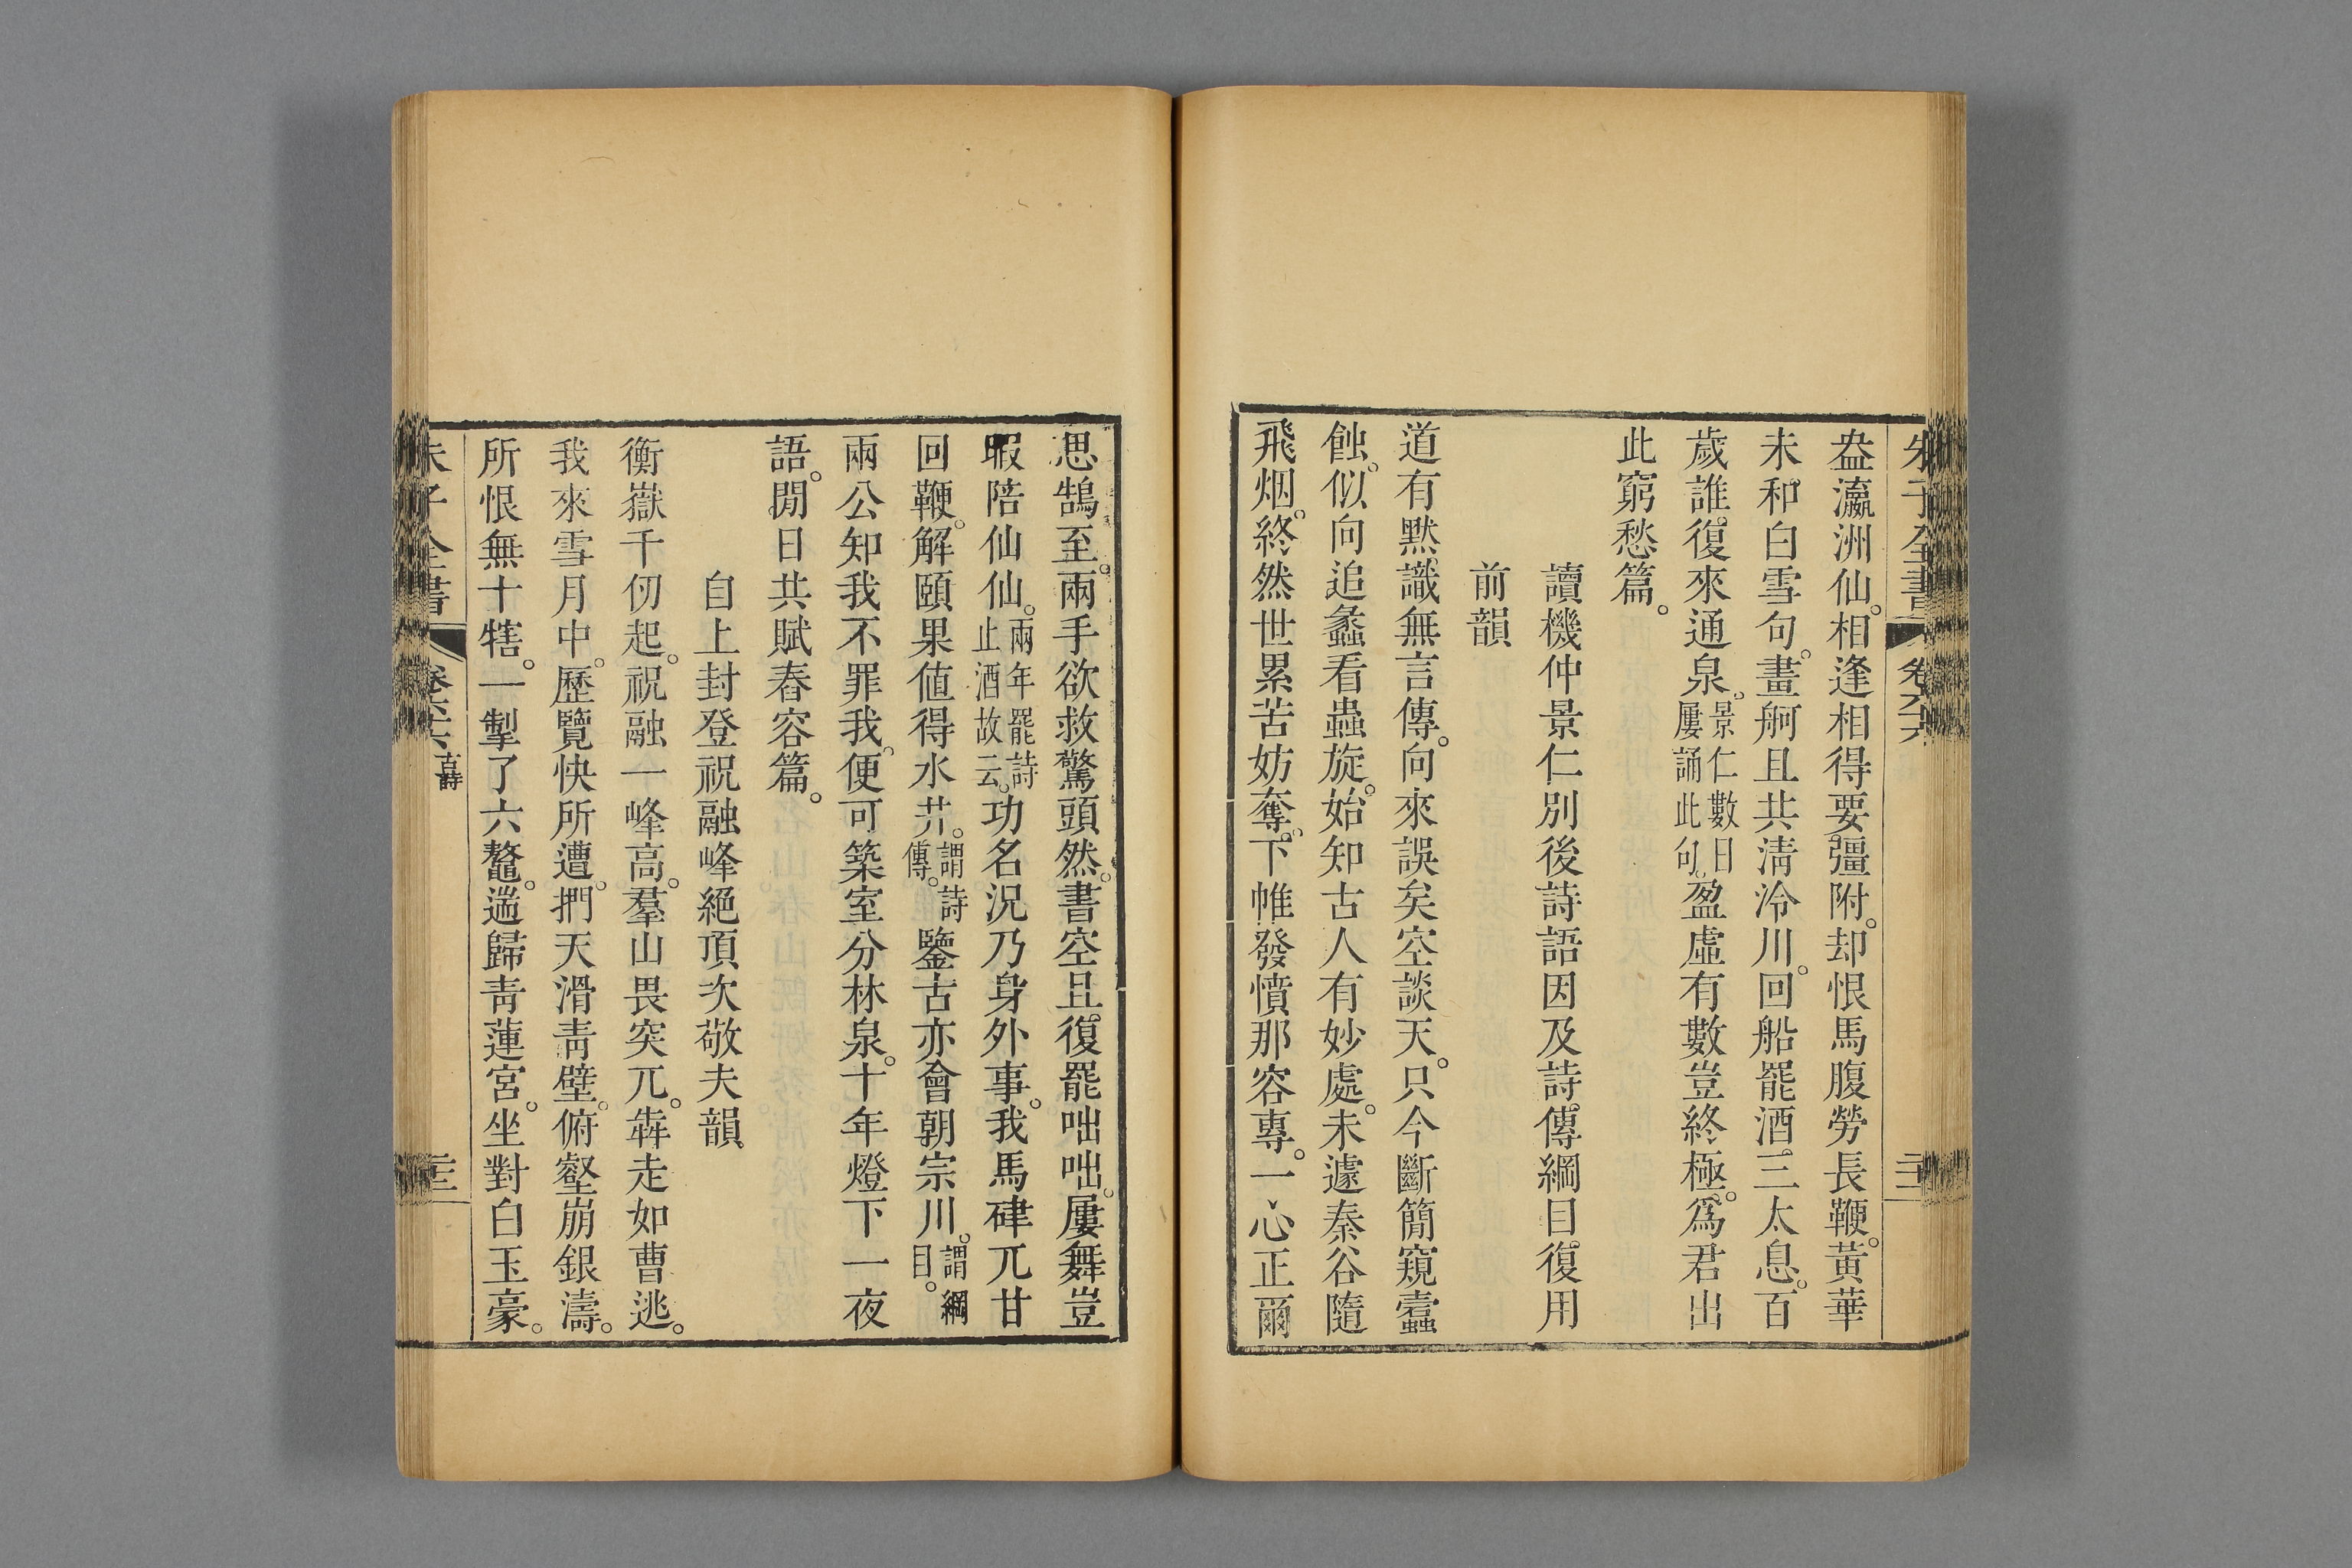 朱子全書 卷六十六
盎瀛洲仙。相逢相得要彊附。却恨馬腹勞長鞭。黃華
未和白雪句。畫舸且共清泠川。回船罷酒三太息。百
歲誰復來通泉。景仁數日屢誦此句。盈虛有數豈終極。爲君出
此窮愁篇。
讀機仲景仁別後詩語因及詩傳綱目復用
前韻
道有默識無言傳。向來誤矣空談天。只今斷簡窺蠹
蝕。似向追蠡看蟲旋。始知古人有妙處。未遽秦谷隨
飛烟。終然世累苦妨奪。下帷發憤那容專。一心正爾
思鵠至。兩手欲救驚頭然。書空且復罷咄咄。屢舞豈
暇陪仙仙。兩年罷詩止酒故云。功名況乃身外事。我馬硉兀甘
回鞭。解頤果値得水井。謂詩傳。鑒古亦會朝宗川。謂綱目。
兩公知我不罪我。便可築室分林泉。十年燈下一夜
語。閒日共賦春容篇。
自上封登祝融峰絕頂次敬夫韻
衡嶽千仞起。祝融一峰高。羣山畏突兀。犇走如曹逃。
我來雪月中。歷覽快所遭。捫天滑靑壁。俯壑崩銀濤。
所恨無十犗。一掣了六鼇。遄歸靑蓮宮。坐對白玉豪。
朱子全書 卷六十六 古詩